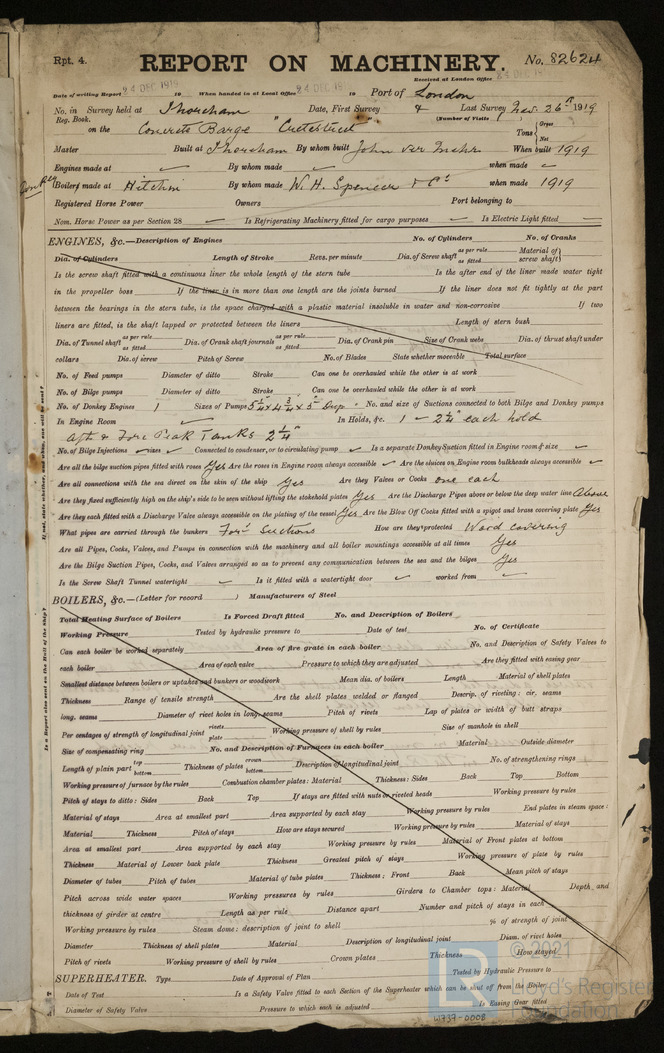 Rpt. 4.
REPORT ON MACHINERY.
No. 82624
Received at London Office
24 DEC 1919
Date of writing Report 24 DEC 1919 19 When handed in at Local Office 24 DEC 19 19 Port of London
No. in Survey held at Shoreham Date, First Survey Last Survey Nov. 26th 1919
Reg. Book. (Number of Visits
on the Concrete Barge "Cretestreet" Tons { Gross
Net
Master Built at Shoreham By whom built John ver Mehr When built 1919
Engines made at By whom made when made
Donkey Boilers made at Hitchin By whom made W. H. Spencer & Co when made 1919
Registered Horse Power Owners Port belonging to
Nom. Horse Power as per Section 28 Is Refrigerating Machinery fitted for cargo purposes Is Electric Light fitted
ENGINES, &c.—Description of Engines No. of Cylinders No. of Cranks
Dia. of Cylinders Length of Stroke Revs. per minute Dia. of Screw shaft as per rule as fitted Material of screw shaft
Is the screw shaft fitted with a continuous liner the whole length of the stern tube Is the after end of the liner made water tight
in the propeller boss If the liner is in more than one length are the joints burned If the liner does not fit tightly at the part
between the bearings in the stern tube, is the space charged with a plastic material insoluble in water and non-corrosive If two
liners are fitted, is the shaft lapped or protected between the liners Length of stern bush
Dia. of Tunnel shaft as per rule as fitted Dia. of Crank shaft journals as per rule as fitted Dia. of Crank pin Size of Crank webs Dia. of thrust shaft under
collars Dia. of screw Pitch of Screw No. of Blades State whether moveable Total surface
No. of Feed pumps Diameter of ditto Stroke Can one be overhauled while the other is at work
No. of Bilge pumps Diameter of ditto Stroke Can one be overhauled while the other is at work
No. of Donkey Engines 1 Sizes of Pumps 5¼" x 4¾" x 5" Dup No. and size of Suctions connected to both Bilge and Donkey pumps
In Engine Room In Holds, &c. 1 - 2¼" each hold
Aft & Fore Peak Tanks 2¼"
No. of Bilge Injections sizes Connected to condenser, or to circulating pump Is a separate Donkey Suction fitted in Engine room & size
Are all the bilge suction pipes fitted with roses Yes Are the roses in Engine room always accessible Are the sluices on Engine room bulkheads always accessible
Are all connections with the sea direct on the skin of the ship Yes Are they Valves or Cocks one each
Are they fixed sufficiently high on the ship's side to be seen without lifting the stokehold plates Yes Are the Discharge Pipes above or below the deep water line Above
Are they each fitted with a Discharge Valve always accessible on the plating of the vessel Yes Are the Blow Off Cocks fitted with a spigot and brass covering plate Yes
What pipes are carried through the bunkers For'd Suctions How are they protected Wood covering
Are all Pipes, Cocks, Valves, and Pumps in connection with the machinery and all boiler mountings accessible at all times Yes
Are the Bilge Suction Pipes, Cocks, and Valves arranged so as to prevent any communication between the sea and the bilges Yes
Is the Screw Shaft Tunnel watertight Is it fitted with a watertight door worked from
BOILERS, &c.—(Letter for record ) Manufacturers of Steel
Total Heating Surface of Boilers Is Forced Draft fitted No. and Description of Boilers
Working Pressure Tested by hydraulic pressure to Date of test No. of Certificate
Can each boiler be worked separately Area of fire grate in each boiler No. and Description of Safety Valves to
each boiler Area of each valve Pressure to which they are adjusted Are they fitted with easing gear
Smallest distance between boilers or uptakes and bunkers or woodwork Mean dia. of boilers Length Material of shell plates
Thickness Range of tensile strength Are the shell plates welded or flanged Descrip. of riveting: cir. seams
long. seams Diameter of rivet holes in long. seams Pitch of rivets Lap of plates or width of butt straps
Per centages of strength of longitudinal joint rivets plate Working pressure of shell by rules Size of manhole in shell
Size of compensating ring No. and Description of Furnaces in each boiler Material Outside diameter
Length of plain part top bottom Thickness of plates crown bottom Description of longitudinal joint No. of strengthening rings
Working pressure of furnace by the rules Combustion chamber plates: Material Thickness: Sides Back Top Bottom
Pitch of stays to ditto: Sides Back Top If stays are fitted with nuts or riveted heads Working pressure by rules
Material of stays Area at smallest part Area supported by each stay Working pressure by rules End plates in steam space:
Material Thickness Pitch of stays How are stays secured Working pressure by rules Material of stays
Area at smallest part Area supported by each stay Working pressure by rules Material of Front plates at bottom
Thickness Material of Lower back plate Thickness Greatest pitch of stays Working pressure of plate by rules
Diameter of tubes Pitch of tubes Material of tube plates Thickness: Front Back Mean pitch of stays
Pitch across wide water spaces Working pressures by rules Girders to Chamber tops: Material Depth and
thickness of girder at centre Length as per rule Distance apart Number and pitch of stays in each
Working pressure by rules Steam dome: description of joint to shell % of strength of joint
Diameter Thickness of shell plates Material Description of longitudinal joint Diam. of rivet holes
Pitch of rivets Working pressure of shell by rules Crown plates Thickness How stayed
SUPERHEATER. Type Date of Approval of Plan Tested by Hydraulic Pressure to
Date of Test Is a Safety Valve fitted to each Section of the Superheater which can be shut off from the Boiler
Diameter of Safety Valve Pressure to which each is adjusted Is Easing Gear fitted
Is a Report also sent on the Hull of the Ship?
© 2021
Lloyd's Register
Foundation
W737-0008